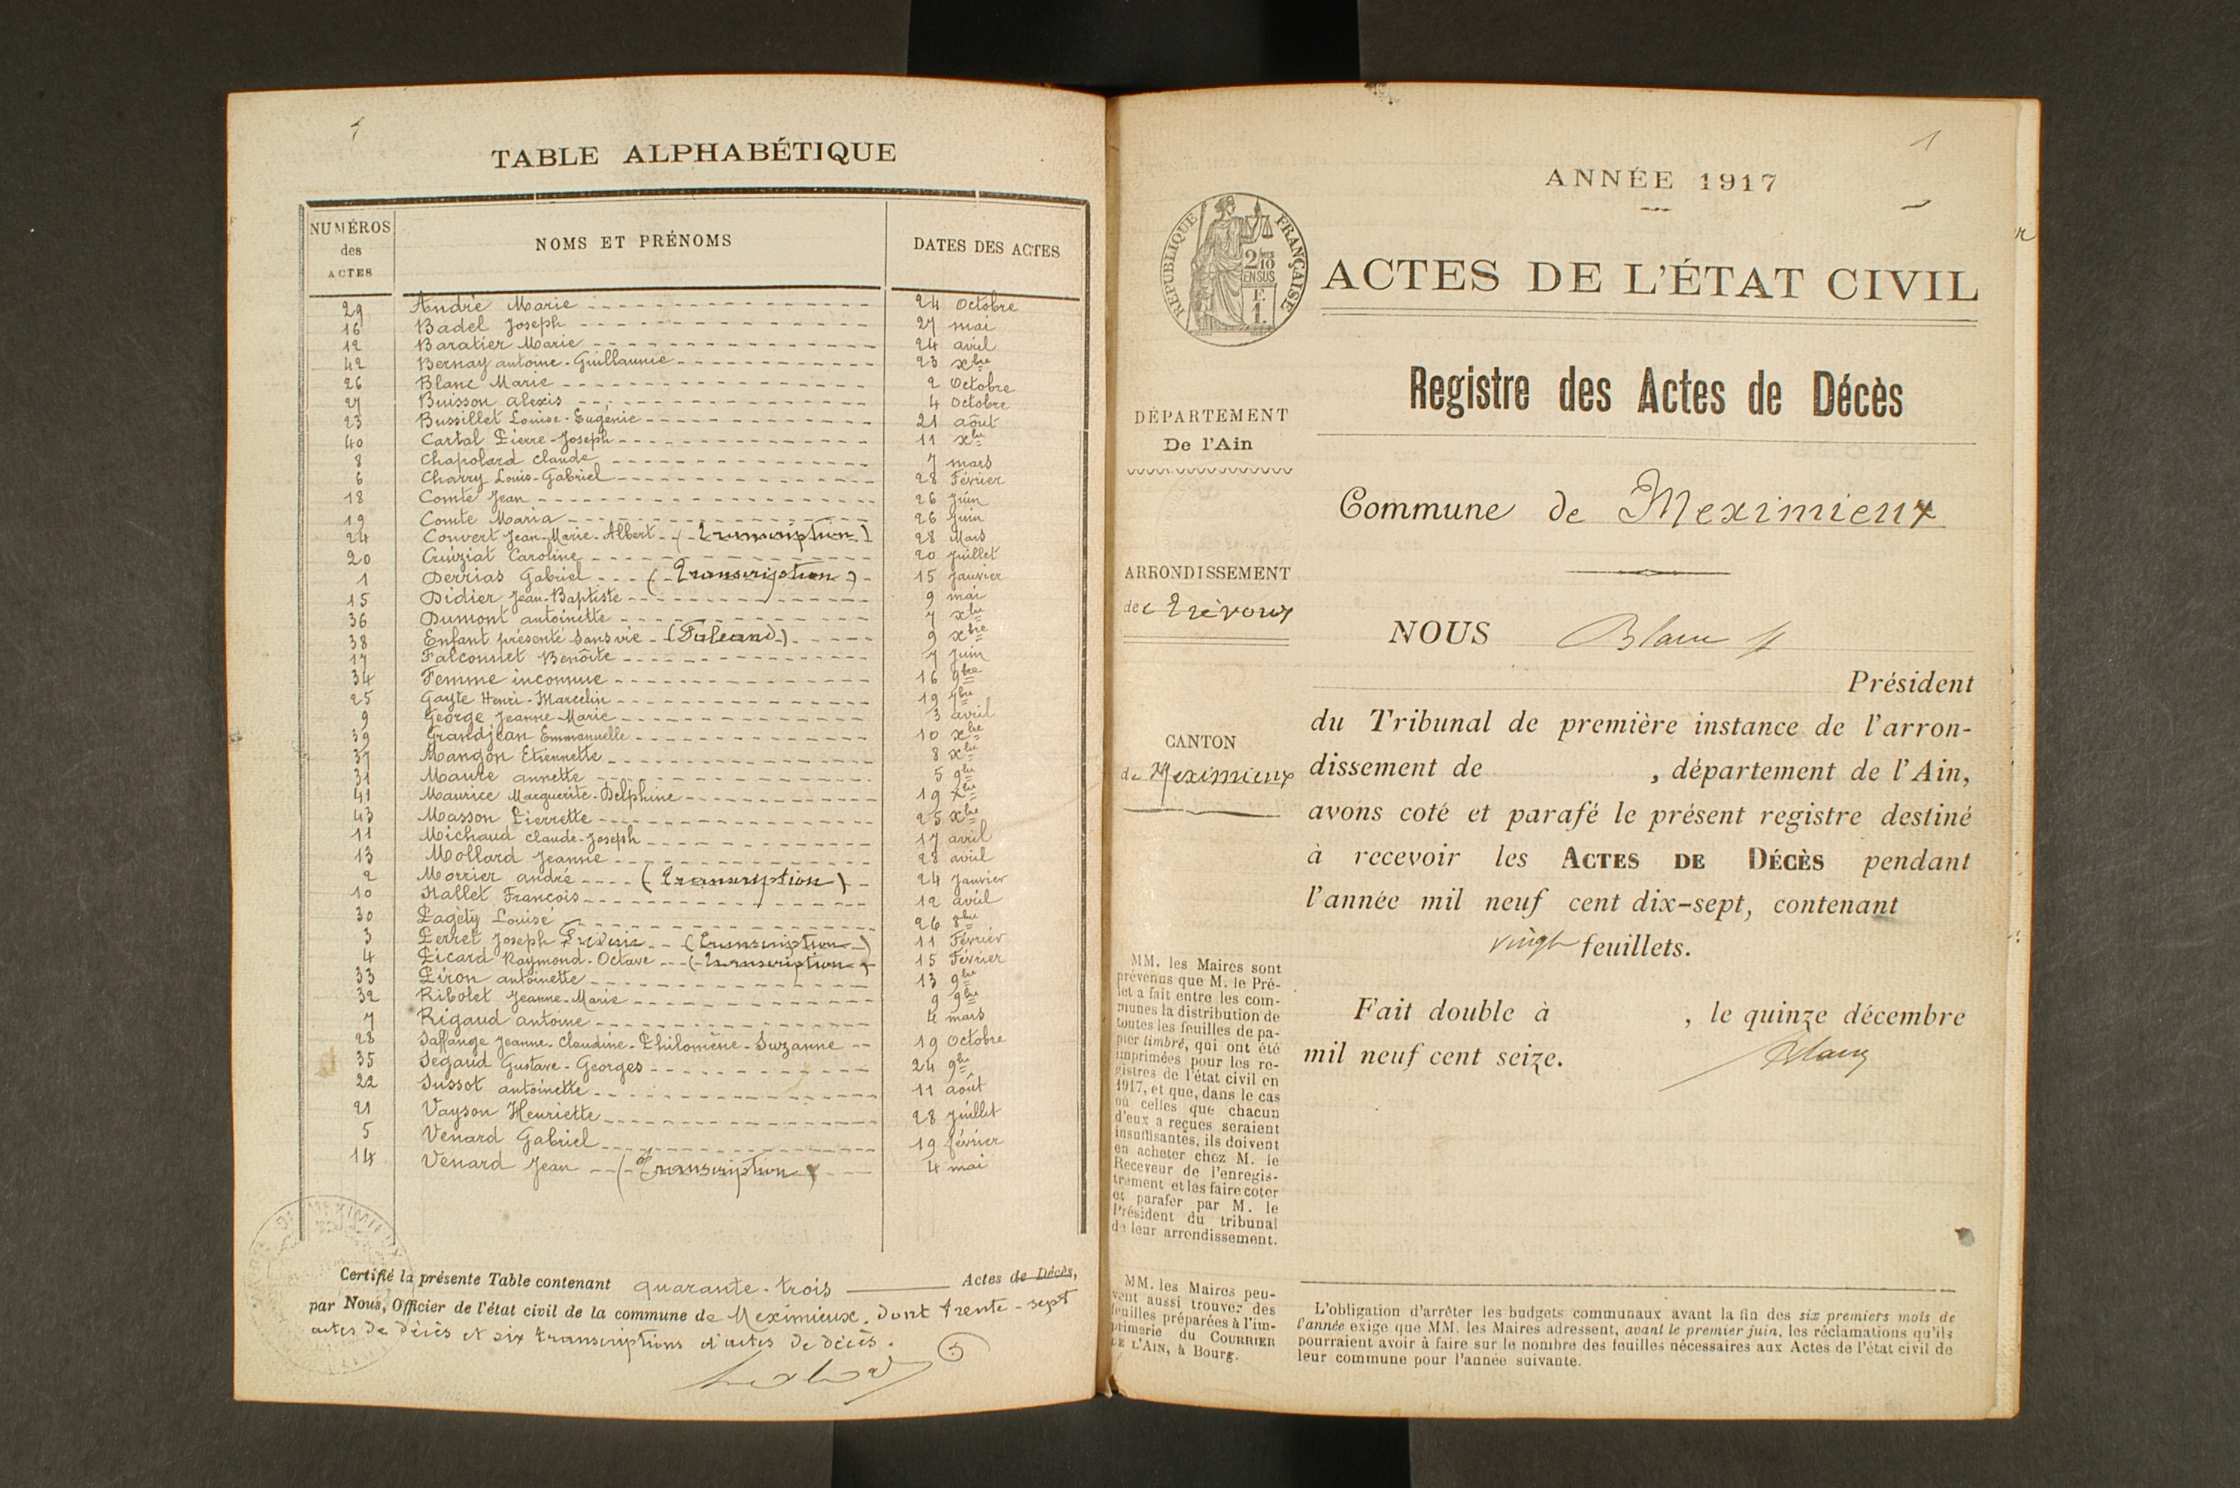 TABLE ALPHABÉTIQUE
NUMÉROS des ACTES NOMS ET PRÉNOMS DATES DES ACTES
29 André Marie 24 Octobre
16 Badel Joseph 27 mai
12 Baratier Marie 24 avril
42 Bernay antoine-Guillaume 23 xbre
26 Blanc Marie 2 Octobre
27 Buisson alexis 4 Octobre
23 Bussillet Louise-Eugénie 21 août
40 Cartal Pierre-Joseph 11 xbre
8 Chapolard claude 7 mars
6 Charry Louis-Gabriel 28 Février
18 Comte Jean 26 Juin
19 Comte Maria 26 Juin
24 Convert Jean-Marie-Albert (Transcription) 28 Mars
20 Cruiziat Caroline 20 Juillet
1 Derrias Gabriel (Transcription) 15 Janvier
15 Didier Jean-Baptiste 9 mai
36 Dumont antoinette 7 xbre
38 Enfant présenté sans vie 9 xbre
17 Falconnet Benoîte 7 Juin
34 Femme inconnue 16 9bre
25 Gayte Henri-Marcelin 19 7bre
9 George Jeanne-Marie 3 avril
39 Grandjean Emmanuelle 10 xbre
37 Mangon Etiennette 8 xbre
31 annette 5 9bre
41 Maurice Marguerite-Delphine 19 xbre
43 Masson Pierrette 25 xbre
11 Michaud claude-Joseph 17 avril
13 Mollard Jeanne 28 avril
2 Morrier andré (Transcription) 24 Janvier
10 Nallet François 12 avril
30 Louise 26 8bre
3 Perret Joseph (Transcription) 11 Février
4 Picard Raymond-Octave (Transcription) 15 Février
33 Piron antoinette 13 9bre
32 Ribolet Jeanne-Marie 9 9bre
7 Rigaud antoine 4 mars
28 Saffange Jeanne-Claudine-Philomène-Suzanne 19 Octobre
35 Segaud Gustave-Georges 24 9bre
22 Sussot antoinette 11 août
21 Vayson Henriette 28 Juillet
5 Venard Gabriel 19 février
14 Venard Jean (Transcription) 4 mai
Certifié la présente Table contenant quarante-trois Actes de Décès,
par Nous, Officier de l'état civil de la commune de Meximieux, dont trente-sept
actes de décès et six transcriptions d'actes de décès.
1
ANNÉE 1917
RÉPUBLIQUE FRANÇAISE
2/10 EN SUS
F. 1.
ACTES DE L'ÉTAT CIVIL
Registre des Actes de Décès
DÉPARTEMENT
De l'Ain
Commune de Meximieux
ARRONDISSEMENT
de Trévoux
NOUS Blanc
Président
du Tribunal de première instance de l'arron-
CANTON
de Meximieux
dissement de , département de l'Ain,
avons coté et parafé le présent registre destiné
à recevoir les ACTES DE DÉCÈS pendant
l'année mil neuf cent dix-sept, contenant
vingt feuillets.
Fait double à , le quinze décembre
mil neuf cent seize.
MM. les Maires sont
prévenus que M. le Pré-
fet a fait entre les com-
munes la distribution de
toutes les feuilles de pa-
pier timbré, qui ont été
imprimées pour les re-
gistres de l'état civil en
1917, et que, dans le cas
où celles que chacun
d'eux a reçues seraient
insuffisantes, ils doivent
en acheter chez M. le
Receveur de l'enregis-
trement et les faire coter
et parafer par M. le
Président du tribunal
de leur arrondissement.
MM. les Maires peu-
vent aussi trouver des
feuilles préparées à l'im-
primerie du COURRIER
DE L'AIN, à Bourg.
L'obligation d'arrêter les budgets communaux avant la fin des six premiers mois de
l'année exige que MM. les Maires adressent, avant le premier juin, les réclamations qu'ils
pourraient avoir à faire sur le nombre des feuilles nécessaires aux Actes de l'état civil de
leur commune pour l'année suivante.